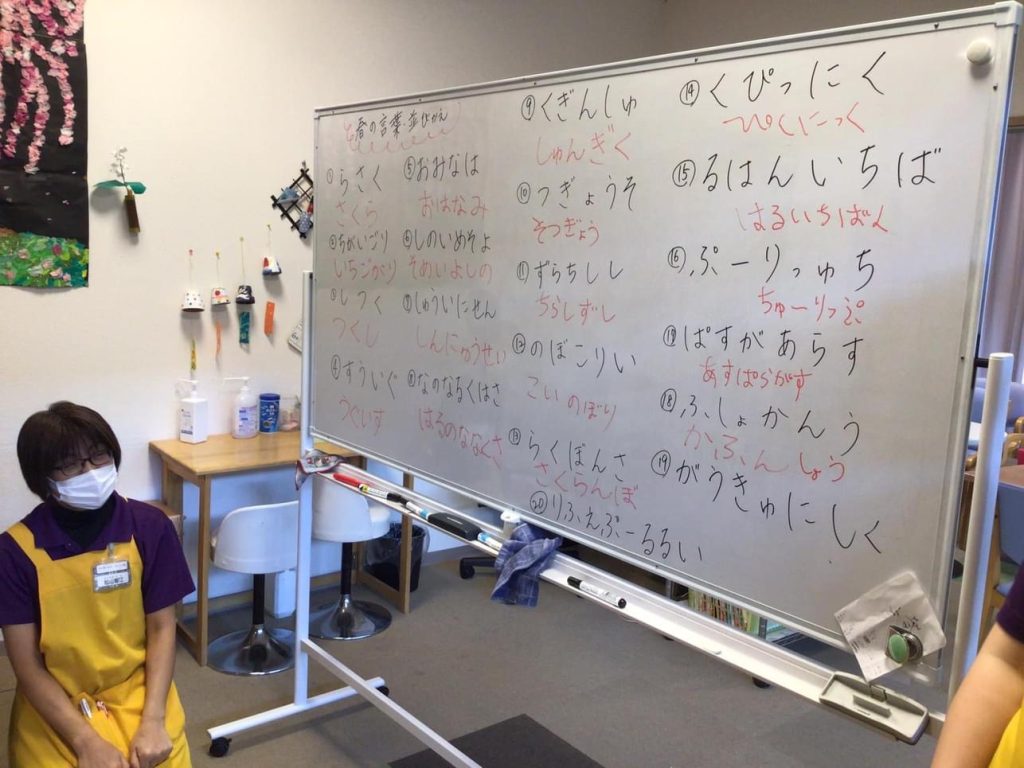 春の言葉・並びかえ
①らさく
さくら
②ちがいごり
いちごがり
③しつく
つくし
④すういぐ
うぐいす
⑤おみなは
おはなみ
⑥しのいめそよ
そめいよしの
⑦しゅういにせん
しんにゅうせい
⑧なのなるくはさ
はるのななくさ
⑨くぎんしゅ
しゅんぎく
⑩つぎょうそ
そつぎょう
⑪ずらちしし
ちらしずし
⑫のぼこりい
こいのぼり
⑬らくぼんさ
さくらんぼ
⑭くぴっにく
ぴくにっく
⑮るはんいちば
はるいちばん
⑯ぷーりっゅち
ちゅーりっぷ
⑰ぱすがあらす
あすぱらがす
⑱ふしょかんう
かふんしょう
⑲がうきゅにしく
⑳りふえぷーるるい